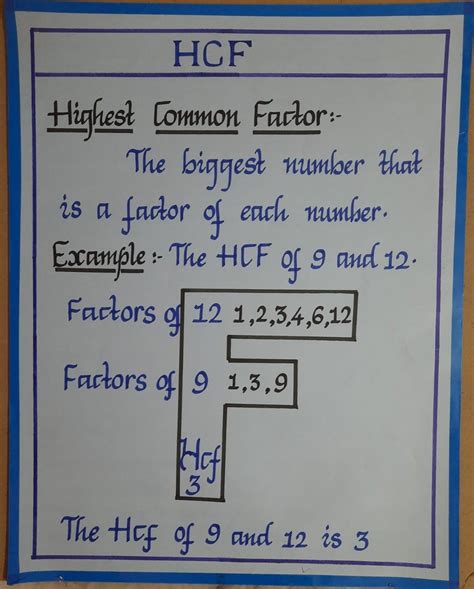 HCF
Highest Common Factor:-
The biggest number that
is a factor of each number.
Example:- The HCF of 9 and 12.
Factors of 12 1,2,3,4,6,12
Factors of 9 1,3,9
Hcf
3
The Hcf of 9 and 12 is 3